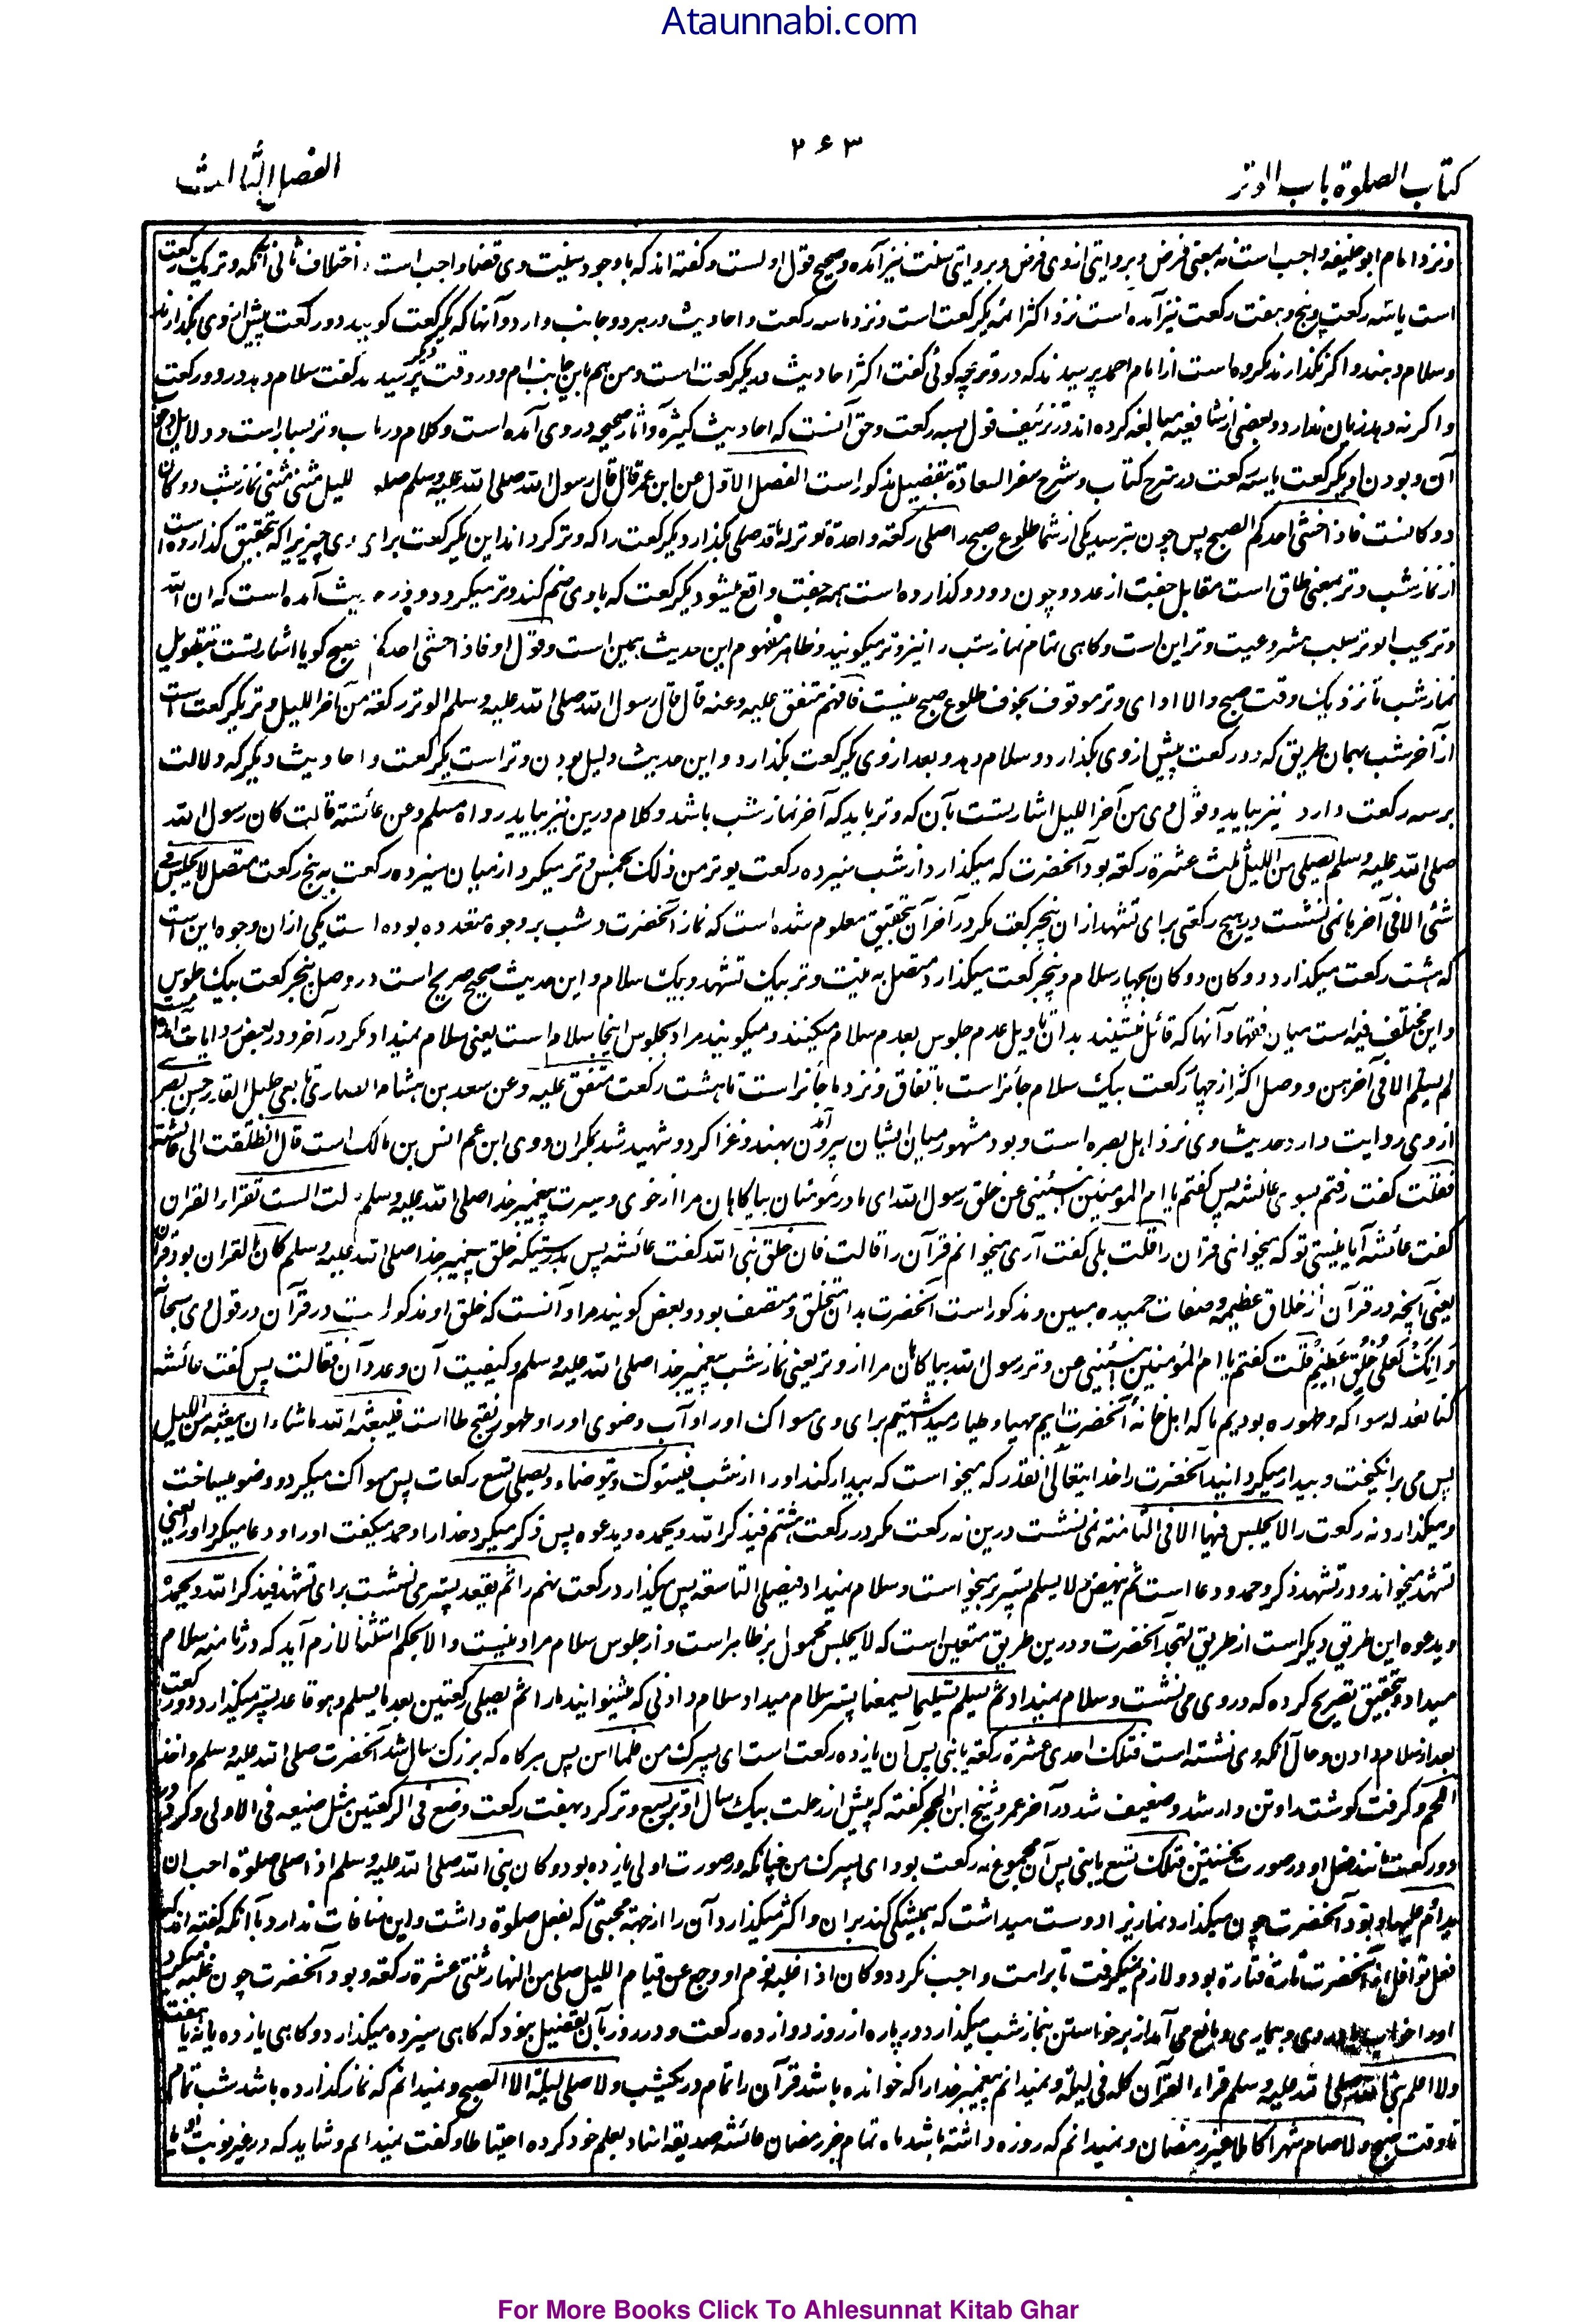 Ataunnabi.com
کتاب الصلوة باب الوتر
۲۶۳
الفصل الثالث
ونزد امام ابو حنیفه واجب است نه بمعنی فرض و بروایتی از وی فرض و بروایتی سنت نیز آمده و صحیح قول اولست و گفته اند که باوجود سنیت وی قضا واجب است اختلاف ثانی آنکه وتر یک رکعت
است یا سه رکعت و پنج و هفت رکعت نیز آمده است نزد اکثر ائمه یکرکعت است و نزد ما سه رکعت و احادیث در هر دو جانب وارد و آنها که یکرکعت گویند دو رکعت پیش از وی بگذارند
و سلام دهند و اگر نگذارند مکروه است از امام احمد پرسیدند که در وتر چه گوئی گفت اکثر احادیث در یکرکعت است و من هم باین جانب ام و در وقت دیگر پرسیدند گفت سلام دهد در دو رکعت
و اگر نه دهد زیان ندارد و بعضی از شافعیه مبالغه کرده اند در تزئیف قول بسه رکعت و حق آنست که احادیث کثیره و آثار صحیحه در وی آمده است و کلام در باب وتر بسیار است و دلایل
آن و بودن او یکرکعت یا سه رکعت در شرح کتاب و شرح سفر السعادة بتفصیل مذکور است الفصل الاول عن ابن عمر قال قال رسول الله صلی الله علیه وسلم صلوة اللیل مثنی مثنی نماز شب دوگان
دوگانست فاذا خشی احدکم الصبح پس چون بترسد یکی از شما طلوع صبح را صلی رکعة واحدة توتر له ما قد صلی بگذارد یکرکعت را که وتر گرداند این یکرکعت برای وی چیزیرا که بتحقیق گذارده است
از نماز شب وتر بمعنی طاق است مقابل جفت از عدد و چون دو دو گذارده است همه جفت واقع میشود یکرکعت که با وی ضم کند وتر میگردد و آمده است که ان الله
وتر یحب الوتر سبب مشروعیت وتر این است و گاهی تمام نماز شب را نیز وتر میگویند و ظاهر مفهوم این حدیث همین است و قول او فاذا خشی احدکم الصبح گویا اشارتست بتطویل
نماز شب تا نزدیک وقت صبح والا ادای وتر موقوف بخوف طلوع صبح نیست فافهم متفق علیه وعنه قال قال رسول الله صلی الله علیه وسلم الوتر رکعة من آخر اللیل وتر یکرکعت است
از آخر شب بهمان طریق که دو رکعت پیش از وی بگذارد و سلام دهد و بعد از وی یکرکعت بگذارد و این حدیث دلیل بودن وتر است یکرکعت و احادیث دیگر که دلالت
بر سه رکعت دارد نیز بیاید و قول وی من آخر اللیل اشارتست بآن که وتر باید که آخر نماز شب باشد و کلام درین نیز بیاید رواه مسلم وعن عائشة قالت کان رسول الله
صلی الله علیه وسلم یصلی من اللیل ثلث عشرة رکعة بود آنحضرت که میگذارد از شب سیزده رکعت یوتر من ذلک بخمس وتر میکرد از میان سیزده رکعت به پنج رکعت متصل لا یجلس فی
شئ الا فی آخرها نمی نشست در هیچ رکعتی برای تشهد از ان پنجرکعت مگر در آخر آن تحقیق معلوم شده است که نماز آنحضرت در شب بر وجوه متعدده بوده است یکی ازان وجوه این است
که هشت رکعت میگذارد دوگان دوگان بچهار سلام و پنجرکعت میگذارد متصل به نیت وتر بیک تشهد و بیک سلام و این حدیث صحیح صریح است در وصل پنجرکعت بیک جلوس
و این مختلف فیه است میان فقها و آنها که قائل نیستند بدان تاویل عدم جلوس بعدم سلام میکنند و میگویند مراد بجلوس اینجا سلام است یعنی سلام نمیداد مگر در آخر و در بعض روایات آمده است
لم یسلم الا فی آخرهن و وصل اکثر از چهار رکعت بیک سلام جائز است باتفاق و نزد ما جائز است تا هشت رکعت متفق علیه وعن سعد بن هشام الانصاری تابعی جلیل القدر حسن بصری
از وی روایت دارد حدیث وی نزد اهل بصره است و بود مشهور میان ایشان بیرون آمد بهند و غزا کرد و شهید شد بمکران و وی ابن عم انس بن مالک است قال انطلقت الی عائشة
فقلت گفت رفتم بسوی عائشه پس گفتم یا ام المؤمنین انبئینی عن خلق رسول الله ای مادر مؤمنان بیاگاهان مرا از خوی و سیرت پیغمبر خدا صلی الله علیه وسلم قالت الست تقرا القران
گفت عائشه آیا نیستی تو که میخوانی قران را قلت بلی گفت آری میخوانم قرآن را قالت فان خلق نبی الله گفت عائشه پس بدرستیکه خلق پیغمبر خدا صلی الله علیه وسلم کان القران بود قرآن
یعنی آنچه در قرآن از اخلاق عظیمه و صفات حمیده مبین و مذکور است آنحضرت بدان متخلق و متصف بود و بعض گویند مراد آنست که خلق او مذکور است در قرآن در قول وی سبحانه
وَاِنَّکَ لَعَلٰی خُلُقٍ عَظِیْمٍ قلت گفتم یا ام المؤمنین انبئینی عن وتر رسول الله بیاگاهان مرا از وتر یعنی نماز شب پیغمبر خدا صلی الله علیه وسلم و کیفیت آن و عدد آن فقالت پس گفت عائشه
کنا نعد له سواکه وطهوره بودیم ما که اهل خانه آنحضرت ایم مهیا و طیار میداشتیم برای وی مسواک او را و آب وضوی او را و طهور بفتح طا است فیبعثه الله ما شاء ان یبعثه من اللیل
پس می برانگیخت و بیدار میگردانید آنحضرت را خدایتعالی آنقدر که میخواست که بیدار کند او را از شب فیتسوک ویتوضاء ویصلی تسع رکعات پس مسواک میکرد و وضو میساخت
و میگذارد نه رکعت را لا یجلس فیها الا فی الثامنة نمی نشست درین نه رکعت مگر در رکعت هشتم فیذکر الله ویحمده ویدعوه پس ذکر میکرد خدا را و حمد میگفت او را و دعا میکرد او را یعنی
تشهد میخواند و در تشهد ذکر و حمد و دعا است ثم ینهض ولا یسلم پستر برمیخاست و سلام نمیداد فیصلی التاسعة پس میگذارد رکعت نهم را ثم یقعد پستر می نشست برای تشهد فیذکر الله ویحمده
ویدعوه این طریق دیگر است از طریق تهجد آنحضرت و درین طریق متعین است که لا یجلس محمول بر ظاهر است و از جلوس سلام مراد نیست والا بحکم استثنا لازم آید که در ثامنه سلام
میداد و تحقیق تصریح کرده که در وی می نشست و سلام نمیداد ثم یسلم تسلیما یسمعنا پستر سلام میداد سلام دادنی که میشنوانید ما را ثم یصلی رکعتین بعد ما یسلم وهو قاعد پستر میگذارد دو رکعت
بعد از سلام دادن و حال آنکه وی نشسته است فتلک احدی عشرة رکعة یا بنی پس آن یازده رکعت است ای پسرک من فلما اسن پس هرگاه که بزرگ سال شد آنحضرت صلی الله علیه وسلم واخذ
اللحم و گرفت گوشت را و تن دار شد و ضعیف شد در آخر عمر و شیخ ابن الحجر گفته که پیش از رحلت بیک سال اوتر بسبع وتر کرد بهفت رکعت وصنع فی الرکعتین مثل صنیعه فی الاولی و کرد در
دو رکعت مانند فعل او در صورت نخستین فتلک تسع یا بنی پس آن مجموع نه رکعت بود ای پسرک من چنانکه در صورت اولی یازده بود وکان نبی الله صلی الله علیه وسلم اذا صلی صلوة احب ان
یداوم علیها و بود آنحضرت چون میگذارد نماز را دوست میداشت که همیشگی کند بران و اکثر میگذارد آن را از جهة محبتی که بفعل صلوة داشت و این منافات ندارد با آنکه گفته اند که
فعل نوافل از آنحضرت تارة فتارة بود و لازم نمیگرفت تا بر امت واجب نگردد وکان اذا غلبه نوم او وجع عن قیام اللیل صلی من النهار ثنتی عشرة رکعة و بود آنحضرت چون غلبه میکرد
او را خواب یا دردی و بیماری و مانع می آمد از برخاستن بنماز شب میگذارد در پاره از روز دوازده رکعت و در روز بآن تفصیل نبود که گاهی سیزده میگذارد و گاهی یازده یا نه یا هفت
ولا اعلم نبی الله صلی الله علیه وسلم قراء القرآن کله فی لیلة و نمیدانم پیغمبر خدا را که خوانده باشد قرآن را تمام در یکشب ولا صلی لیلة الی الصبح و نمیدانم که نماز گذارده باشد شب تمام
تا وقت صبح ولا صام شهرا کاملا غیر رمضان و نمیدانم که روزه داشته باشد ماه تمام جز رمضان عائشه صدیقه اسناد بعلم خود کرده احتیاطا و گفت نمیدانم و شاید که در غیر نوبت او
For More Books Click To Ahlesunnat Kitab Ghar